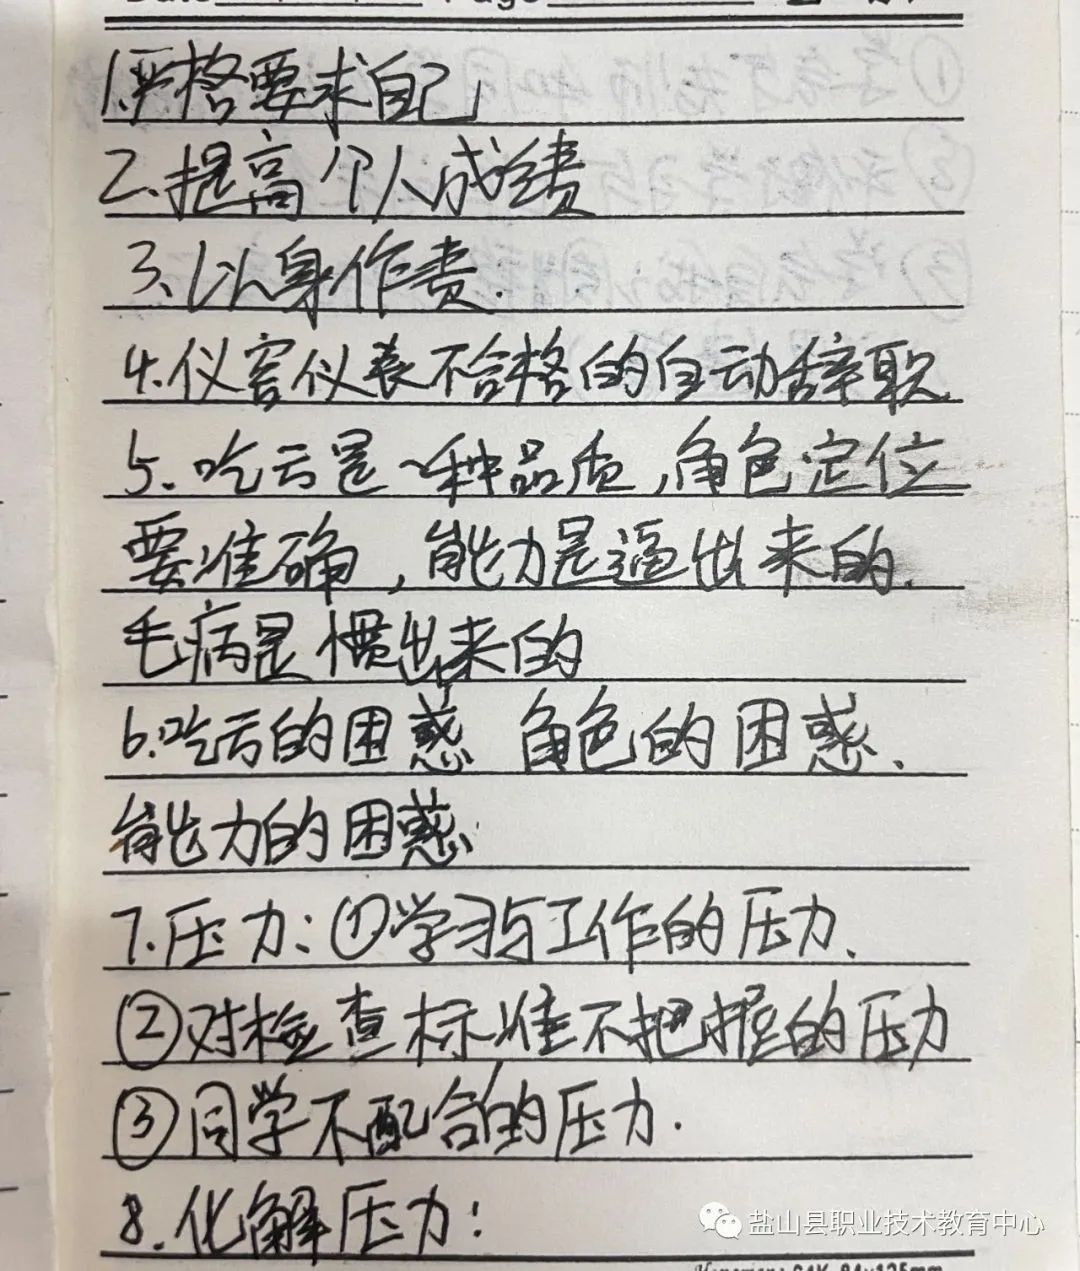 1.严格要求自己
2.提高个人成绩
3.以身作责.
4.仪容仪表不合格的自动辞职.
5.吃亏是一种品质,角色定位
要准确,能力是逼出来的.
毛病是惯出来的
6.吃亏的困惑 角色的困惑、
能力的困惑
7.压力:①学习与工作的压力、
②对检查标准不把握的压力
③同学不配合的压力.
8.化解压力:
盐山县职业技术教育中心